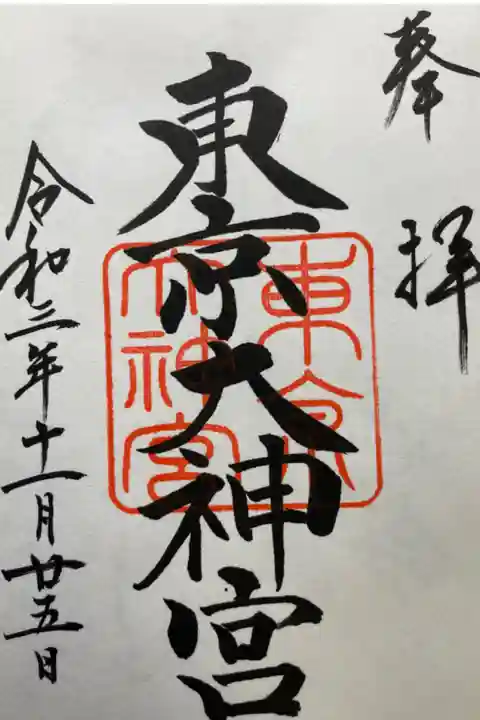 奉拝
東京大神宮
東京大神宮
令和三年十一月廿五日